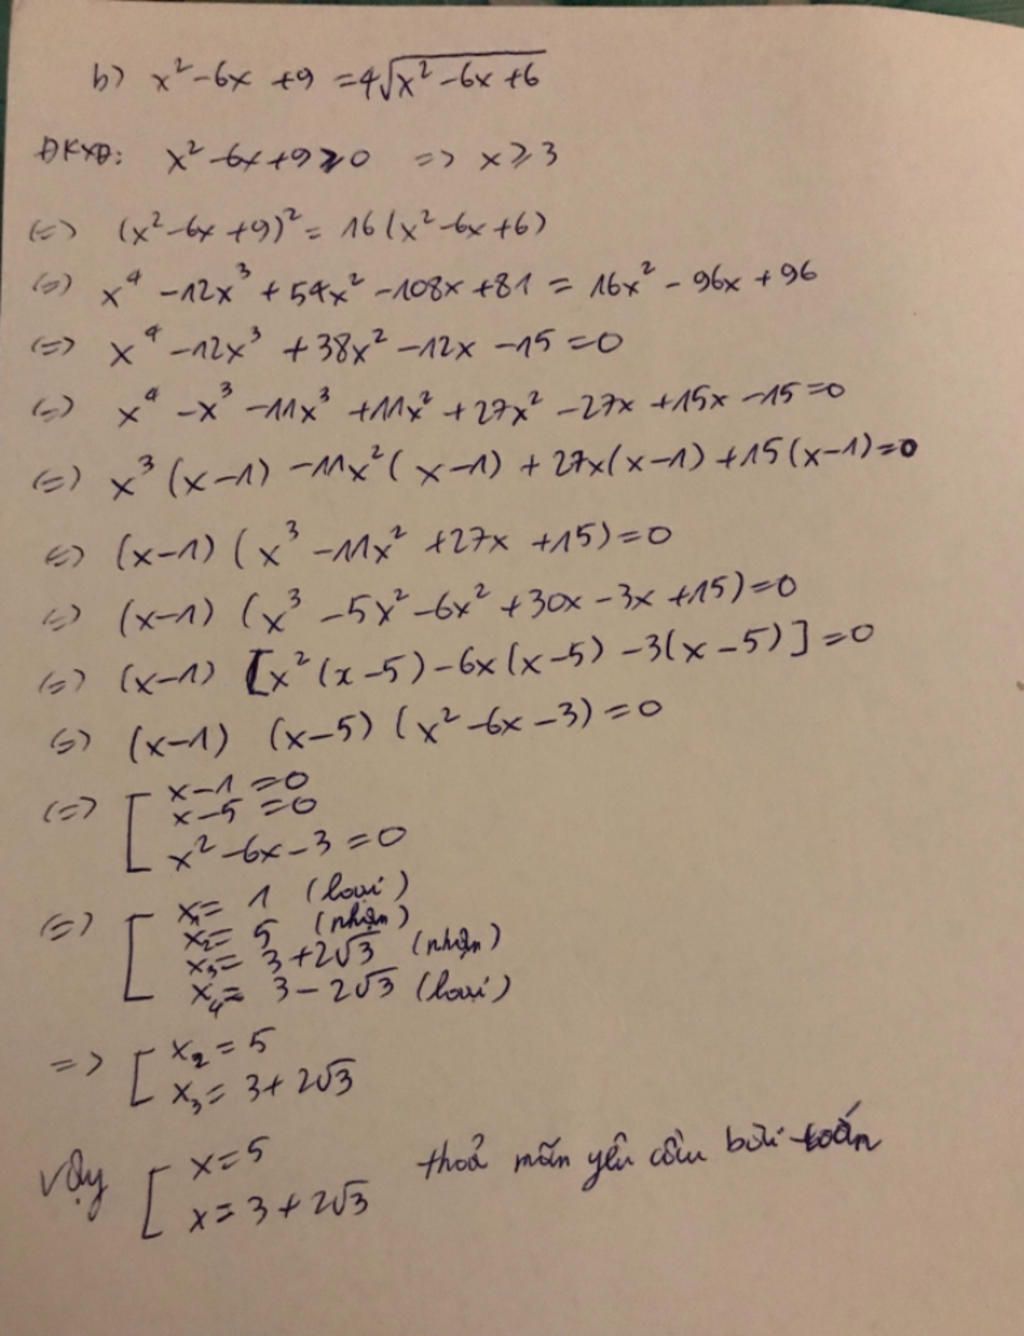 b) x² - 6x + 9 = 4√(x² - 6x + 6)
ĐKXĐ: x² - 6x + 9 ≥ 0 => x ≥ 3
(=) (x² - 6x + 9)² = 16(x² - 6x + 6)
(=) x⁴ - 12x³ + 54x² - 108x + 81 = 16x² - 96x + 96
(=) x⁴ - 12x³ + 38x² - 12x - 15 = 0
(=) x⁴ - x³ - 11x³ + 11x² + 27x² - 27x + 15x - 15 = 0
(=) x³(x-1) - 11x²(x-1) + 27x(x-1) + 15(x-1) = 0
(=) (x-1)(x³ - 11x² + 27x + 15) = 0
(=) (x-1)(x³ - 5x² - 6x² + 30x - 3x + 15) = 0
(=) (x-1)[x²(x-5) - 6x(x-5) - 3(x-5)] = 0
(=) (x-1)(x-5)(x² - 6x - 3) = 0
(=) [ x-1 = 0
x-5 = 0
x² - 6x - 3 = 0
(=) [ x₁ = 1 (loại)
x₂ = 5 (nhận)
x₃ = 3 + 2√3 (nhận)
x₄ = 3 - 2√3 (loại)
=> [ x₂ = 5
x₃ = 3 + 2√3
Vậy [ x = 5 thoả mãn yêu cầu bài toán
x = 3 + 2√3